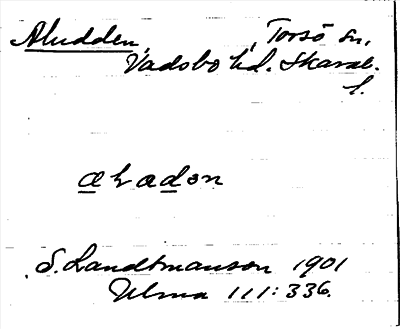 Aludden, Torsö sn,
Vadsbo hd. Skarab.
l.
S. Landtmanson 1901
Ulma 111:336.